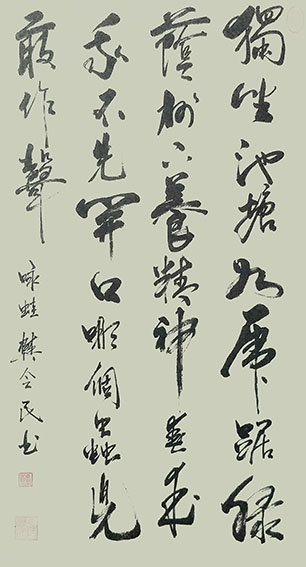 獨坐池塘如虎踞綠
蔭樹下養精神春來
我不先開口哪個蟲兒
敢作聲
咏蛙 民书